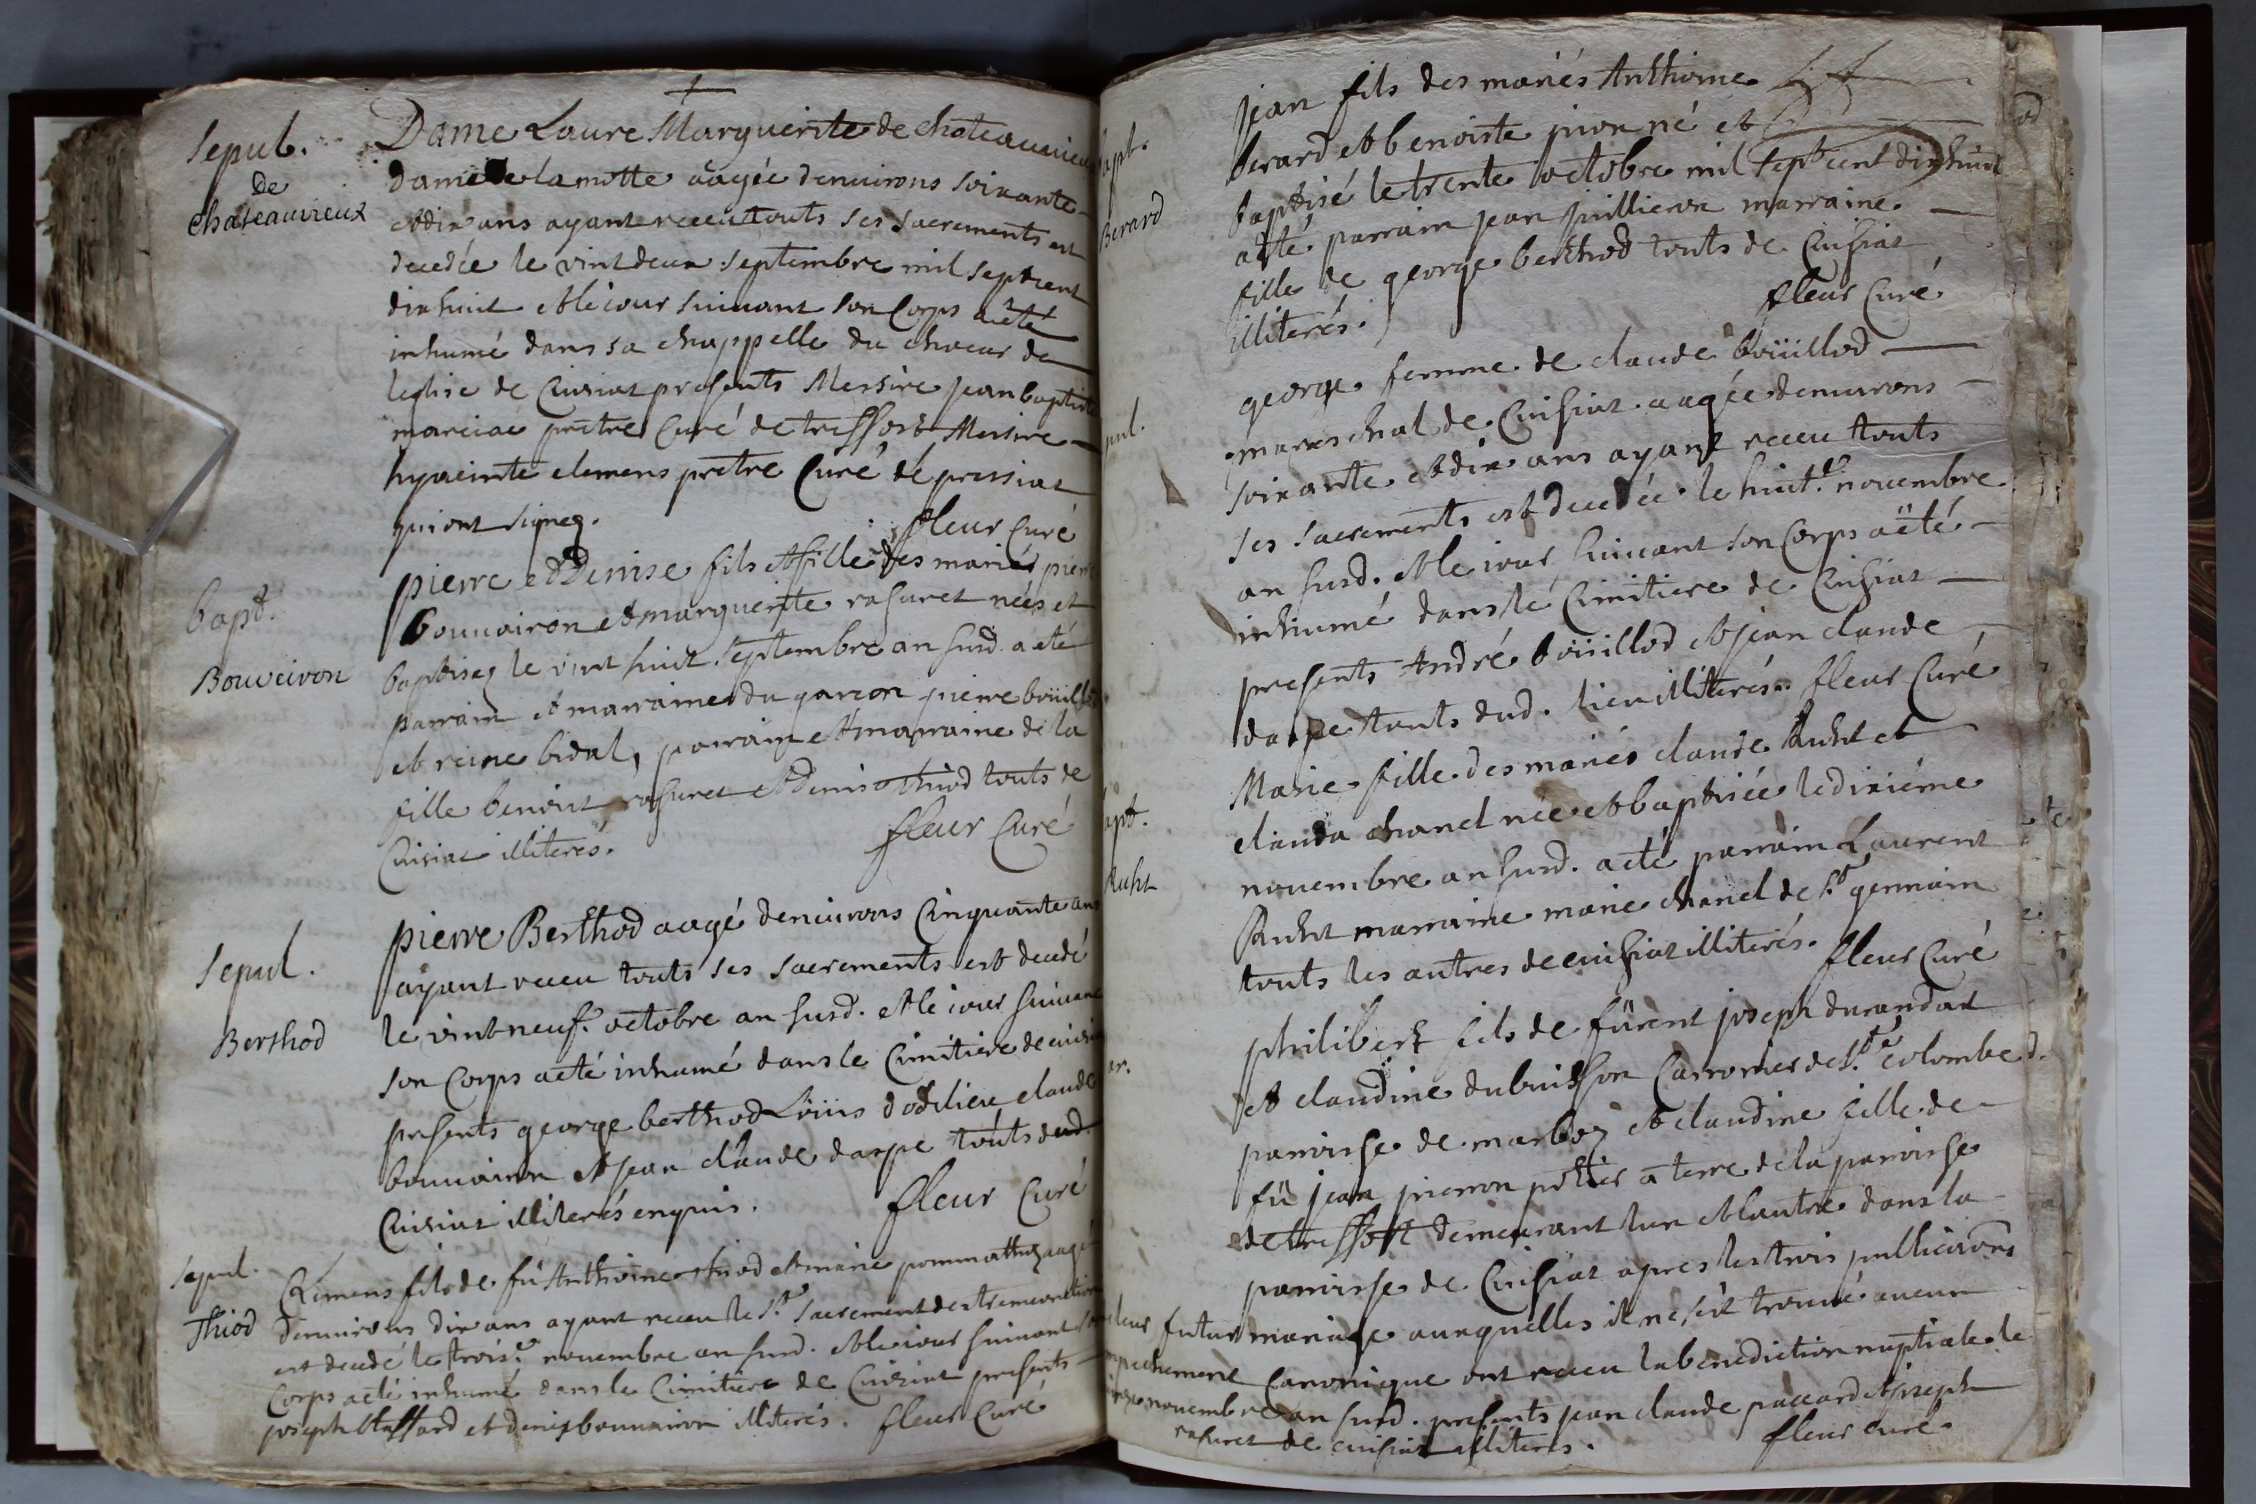 Sepul.
de
Chateauvieux
Dame Laure Marguerite de chateauvieux
dame de la motte aâgée denuirons soixante
et dix ans ayant receu touts ses sacrements est
decedée le vint deux septembre mil sept cent
dix huit et le iour suiuant son Corps a été
inhumé dans sa chappelle du choeur de
leglise de Cuisiat presents Messire jean baptiste
marciac prêtre Curé de treffort Messire
hyacinte clemens prêtre Curé de pressiat
qui ont signez.
fleur Curé
bapt.
Bouveiron
pierre et Denise fils et fille des mariés pierre
bouuairon et marguerite rasuret nées et
baptisez le vint huit septembre an susd. a eté
parrain et marraine du garcon pierre boüillod
et reine bidal, parrain et marraine de la
fille benoist rasuret et denise thiod touts de
Cuisiat illiterés.
fleur Curé
Sepul.
Berthod
pierre Berthod aagé denuirons Cinquante ans
ayant receu touts ses sacrements est decedé
le vint neuf.e octobre an susd. et le iour suiuant
son Corps a eté inhumé dans le Cimitiere de cuisiat
presents george berthod Loüis dodelieu claude
bouuairon et jean claude darpe touts dud.
Cuisiat illiterés enquis.
fleur Curé
Sepul.
Thiod
Clemens fils de fû Anthoine thiod et marie pommattug aagé
denuirons dix ans ayant receu le St. sacrement de extremeonction
est decedé le trois.e nouembre an susd. et le iour suiuant son
Corps a eté inhumé dans le Cimitiere de Cuisiat presents
joseph et denis bouuairon illiterés. fleur Curé
bapt.
Berard
jean fils des mariés Anthoine
berard et benoiste pion né et
baptisé le trente octobre mil sept cent dix huit
a été parrain jean juillieron marraine
fille de george berthod touts de Cuisiat
illiterés.
fleur Curé
pul.
george femme de claude boüillod
mareschal de Cuisiat aagée denuirons
soixante et dix ans ayant receu touts
ses sacrements est decedée le huit.e nouembre
an susd. et le iour suiuant son Corps a été
inhumé dans le Cimitiere de Cuisiat
presents André boüillod et jean claude
darpe touts dud. lieu illiterés. fleur Curé
apt.
Marie fille des mariés claude et
clauda chanel née et baptisée le dixiéme
nouembre an susd. a eté parrain Laurent
marraine marie chanel de St. germain
touts les autres de cuisiat illiterés. fleur Curé
ar.
philibert fils de fûrent joseph durandat
et claudine dubuisson Carronier de Ste. colombe
parroisse de marboz et claudine fille de
fû jean pieron pôtier a terre de la parroisse
de treffort demeurant lun et lautre dans la
parroisse de Cuisiat apres les trois publications
de leur futur mariage auxquelles il ne sest trouué aucun
empechement Canonique ont receu la benediction nuptiale le
nouembre an susd. presents jean claude paccard et joseph
rasuret de cuisiat illiterés. fleur curé.